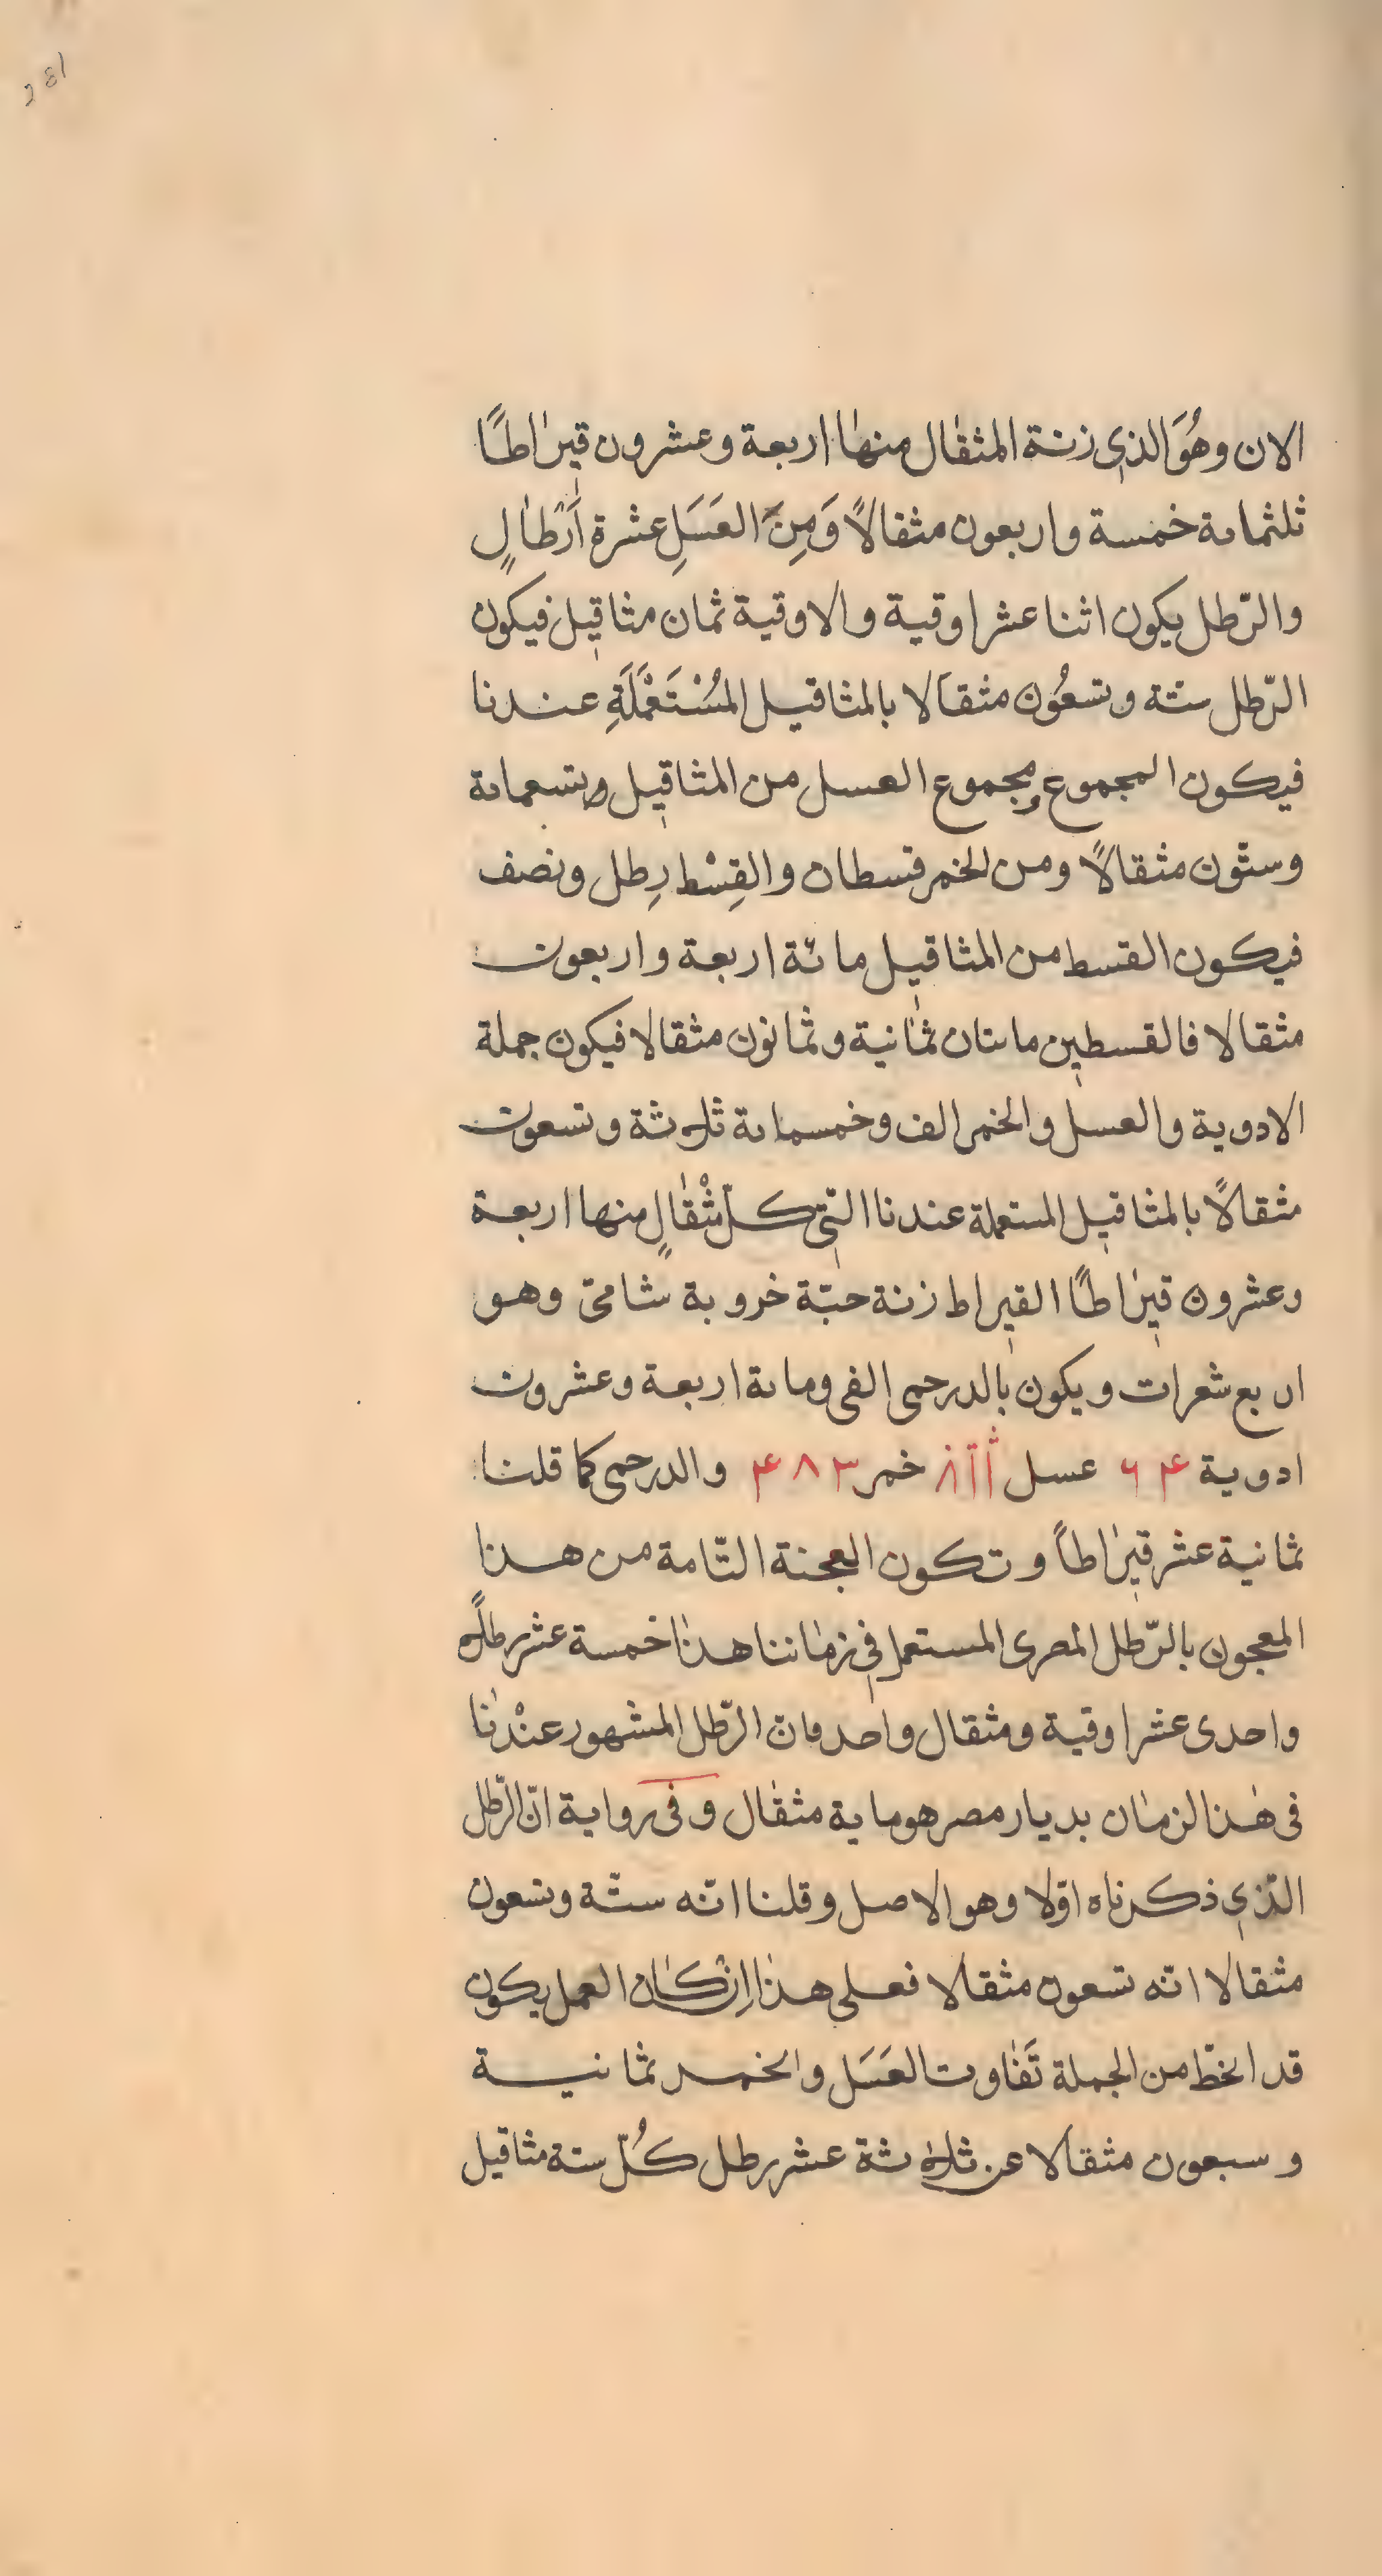 281
الان وهُوَ الذي زنة المثقال منها اربعة وعشرون قيراطًا
ثلثماىة خمسة واربعون مثقالًا وَمِنَ العَسَلِ عشرة اَرْطالٍ
والرّطل يكون اثنا عشر اوقية والاوقية ثمان مثاقيل فيكون
الرّطل ستة وتسعُون مثقالا بالمثاقيل المُسْتَعْمَلَةِ عندنا
فيكون المجموع ومجموع العسل من المثاقيل وتسعماىة
وستّون مثقالًا ومن الخمر قسطان والقِسْط رِطل ونصف
فيكون القسط من المثاقيل مائة اربعة واربعون
مثقالا فالقسطين ماىتان ثمانية وثمانون مثقالا فيكون جملة
الادوية والعسل والخمر الف وخمسماىة ثلاثة وتسعون
مثقالًا بالمثاقيل المستعملة عندنا التّي كلّ مثْقالٍ منها اربعة
وعشرون قيراطًا القيراط زنة حبّة خروبة شاميّ وهو
اربع شعرات ويكون بالدرحمى الفى وماىة اربعة وعشرون
ادوية ۴ ۶ عسل خمر ۳ ۸ ۴ والدرحمى كما قلنا
ثمانية عشر قيراطاً وتكون العجنة التّامة من هذا
المعجون بالرّطل المصرى المستعمل في زماننا هذا خمسة عشر رطلًا
واحدى عشر اوقية ومثقال واحد فان الرّطل المشهور عنْدنا
فى هٰذا الزمان بديار مصر هو ماية مثقال وفى رواية انّ الرّطل
الذّي ذكرناه اوّلا وهو الاصل وقلنا انّه ستّة وتسعون
مثقالا انّه تسعون مثقالا فعلى هذا اِنْ كان العمل يكون
قد انحطّ من الجملة تَفاوت العَسَل والخمر ثمانية
وسبعون مثقالا عن ثلاثة عشر رطل كُلّ ستة مثاقيل